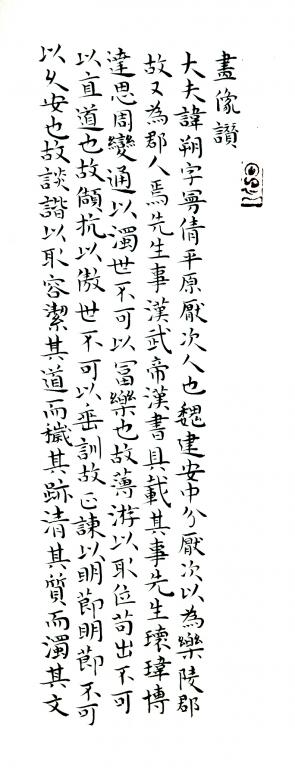 畫像讚
大夫諱朔字曼倩平原厭次人也魏建安中分厭次以為樂陵郡
故又為郡人焉先生事漢武帝漢書具載其事先生瓌瑋博
達思周變通以濁世不可以富樂也故薄游以取位苟出不可
以直道也故頡抗以傲世不可以垂訓故正諫以明節明節不可
以久安也故談諧以取容潔其道而穢其跡清其質而濁其文